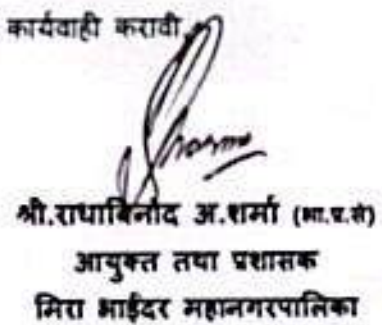 कार्यवाही करावी
Sharma
श्री.राधाबिनोद अ.शर्मा (भा.प्र.से)
आयुक्त तथा प्रशासक
मिरा भाईंदर महानगरपालिका